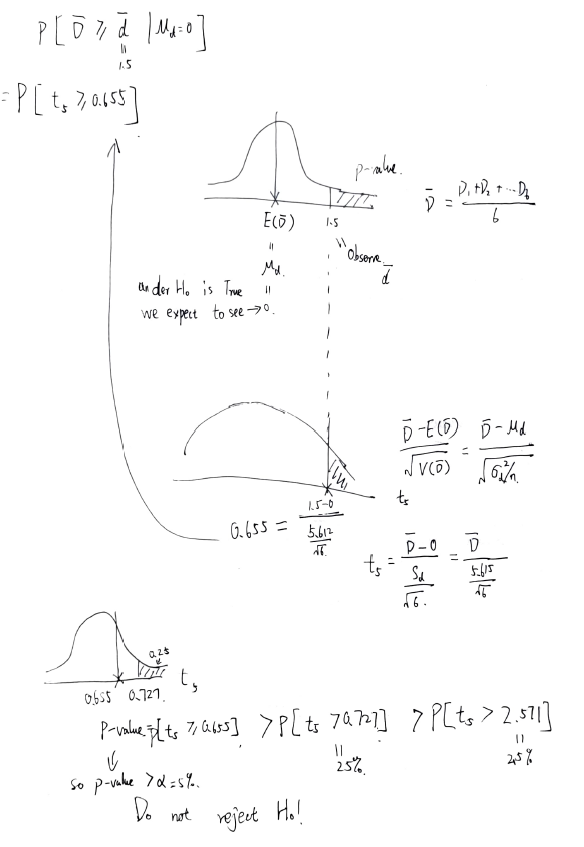 P[ D̄ ⩾ d̄ | μd=0 ]
=
1.5
= P[ t₅ ⩾ 0.655 ]
p-value.
D̄ = (D₁+D₂+...D₆)/6
E(D̄) 1.5
= Observe d̄
μd.
under H₀ is True =
we expect to see → 0.
(D̄ - E(D̄))/√V(D̄) = (D̄ - μd)/√(σd²/n)
t₅
0.655 = (1.5-0)/(5.612/√6)
t₅ = (D̄ - 0)/(Sd/√6.) = D̄/(5.615/√6)
0.25
0.655 0.727. t₅
P-value=P[t₅ ⩾ 0.655] > P[t₅ > 0.727] > P[t₅ > 2.571]
= 25%. = 2.5%
⇓
so p-value > α = 5%.
Do not reject H₀!